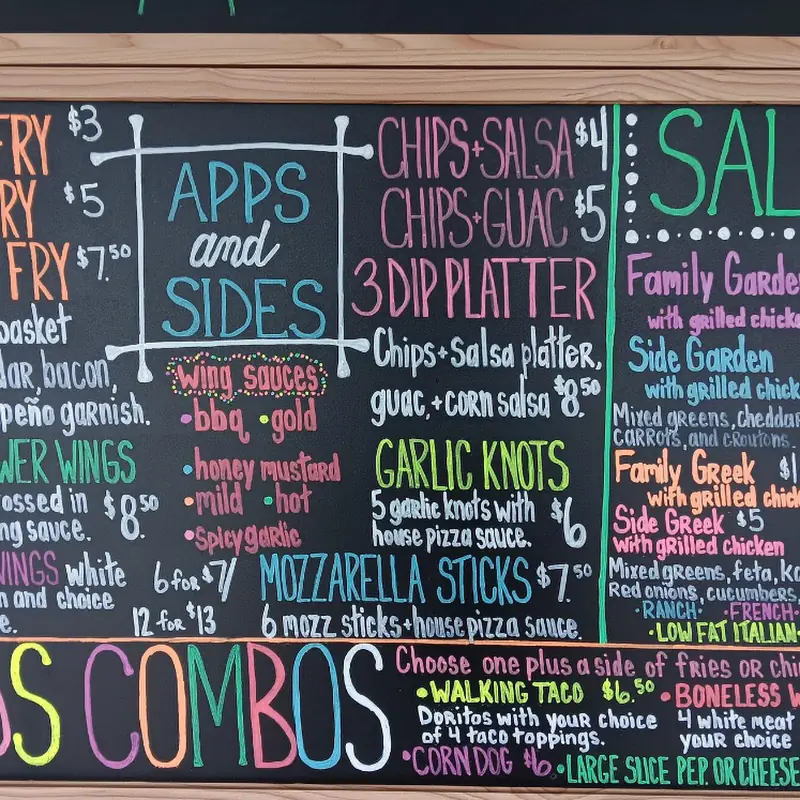 FRY $3
RY $5
FRY $7.50
basket
dar, bacon,
peño garnish.
WER WINGS
ossed in $8.50
ng sauce.
WINGS white 6 for $7/
n and choice
e. 12 for $13
APPS
and
SIDES
wing sauces
•bbq •gold
•honey mustard
•mild •hot
•spicy garlic
CHIPS+SALSA $4
CHIPS+GUAC $5
3 DIP PLATTER
Chips+Salsa platter,
guac,+corn salsa $8.50
GARLIC KNOTS
5 garlic knots with $6
house pizza sauce.
MOZZARELLA STICKS $7.50
6 mozz sticks+house pizza sauce.
SAL
Family Garde
with grilled chicke
Side Garden
with grilled chick
Mixed greens, cheddar
carrots, and croutons.
Family Greek $1
with grilled chick
Side Greek $5
with grilled chicken
Mixed greens, feta, ka
Red onions, cucumbers,
•RANCH• •FRENCH•
•LOW FAT ITALIAN•
OS COMBOS
Choose one plus a side of fries or chi
•WALKING TACO $6.50 •BONELESS W
Doritos with your choice 4 white meat
of 4 taco toppings. your choice
•CORN DOG $6 •LARGE SLICE PEP. OR CHEESE